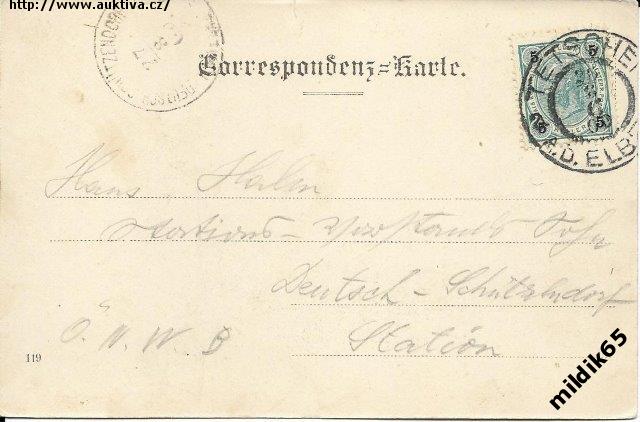 http://www.auktiva.cz/
Correspondenz=Karte.
TETSCHEN
A.D. ELBE
5 5
5
Hans
Stations-Vorstands-Sohn
Deutsch-Schützendorf
Station
Ö. N. W. B
119
mildik65